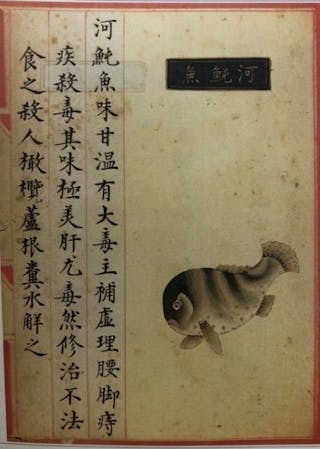 河魨魚
河魨魚味甘溫有大毒主補虛理腰脚痔
疾殺毒其味極美肝尤毒然修治不法
食之殺人橄欖蘆根糞水解之